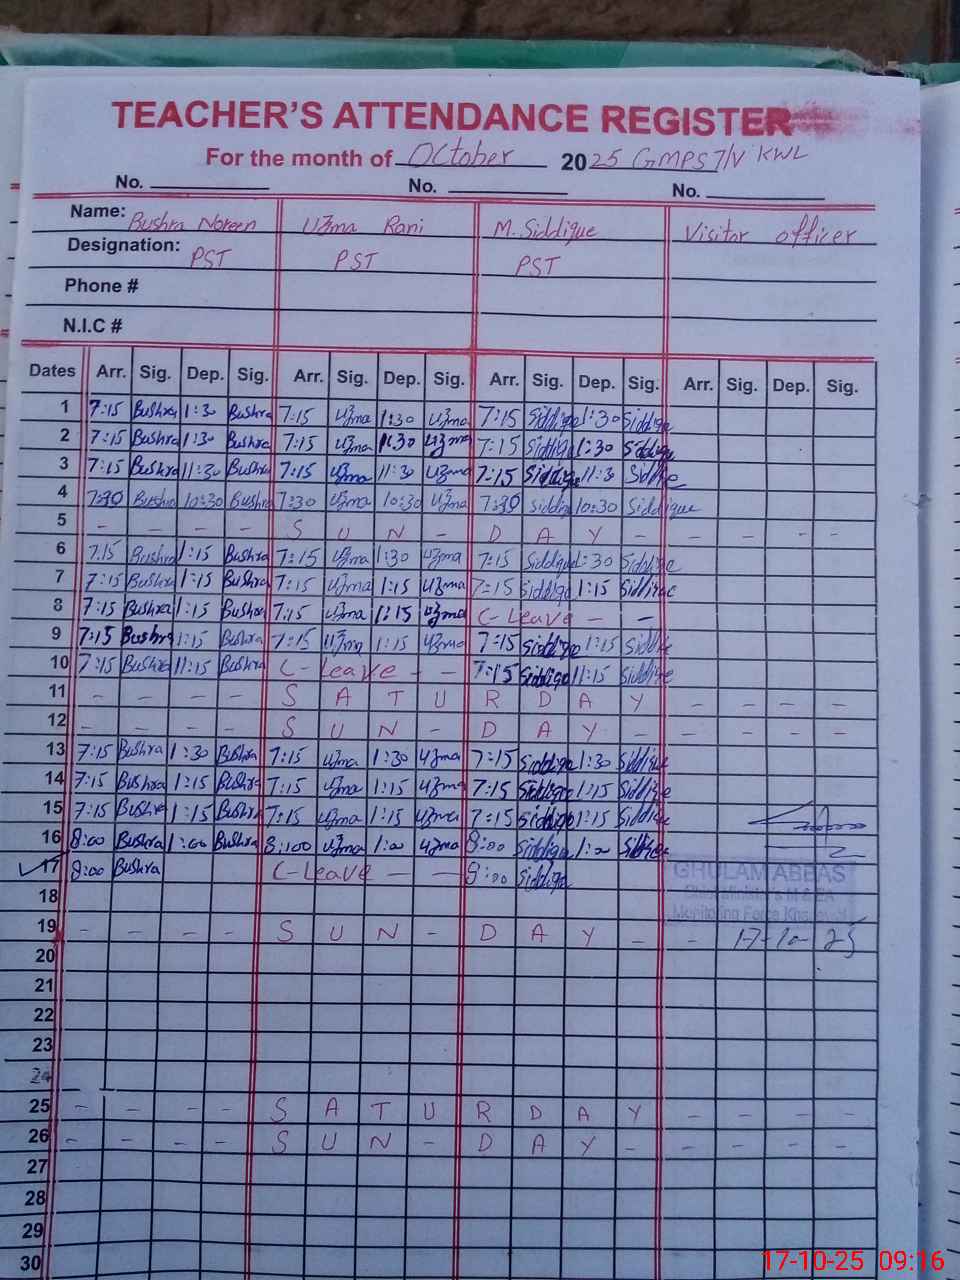 TEACHER'S ATTENDANCE REGISTER
For the month of October 2025 GMPS 7/V KWL
No. No. No.
Name: Bushra Noreen Uzma Rani M. Siddique Visitor officer
Designation: PST PST PST
Phone #
N.I.C #
Dates Arr. Sig. Dep. Sig. Arr. Sig. Dep. Sig. Arr. Sig. Dep. Sig. Arr. Sig. Dep. Sig.
1 7:15 Bushra 1:30 Bushra 7:15 Uzma 1:30 Uzma 7:15 Siddique 1:30 Siddique
2 7:15 Bushra 1:30 Bushra 7:15 Uzma 1:30 Uzma 7:15 Siddique 1:30 Siddique
3 7:15 Bushra 11:30 Bushra 7:15 Uzma 11:30 Uzma 7:15 Siddique 11:30 Siddique
4 7:30 Bushra 10:30 Bushra 7:30 Uzma 10:30 Uzma 7:30 Siddique 10:30 Siddique
5 - - - - S U N - D A Y - - - -
6 7:15 Bushra 1:15 Bushra 7:15 Uzma 1:30 Uzma 7:15 Siddique 1:30 Siddique
7 7:15 Bushra 1:15 Bushra 7:15 Uzma 1:15 Uzma 7:15 Siddique 1:15 Siddique
8 7:15 Bushra 1:15 Bushra 7:15 Uzma 1:15 Uzma C-Leave - -
9 7:15 Bushra 1:15 Bushra 7:15 Uzma 1:15 Uzma 7:15 Siddique 1:15 Siddique
10 7:15 Bushra 11:15 Bushra C-Leave - - 7:15 Siddique 11:15 Siddique
11 - - - - S A T U R D A Y - - - -
12 - - - - S U N - D A Y - - - - -
13 7:15 Bushra 1:30 Bushra 7:15 Uzma 1:30 Uzma 7:15 Siddique 1:30 Siddique
14 7:15 Bushra 1:15 Bushra 7:15 Uzma 1:15 Uzma 7:15 Siddique 1:15 Siddique
15 7:15 Bushra 1:15 Bushra 7:15 Uzma 1:15 Uzma 7:15 Siddique 1:15 Siddique
16 8:00 Bushra 1:00 Bushra 8:00 Uzma 1:00 Uzma 8:00 Siddique 1:00 Siddique
17 8:00 Bushra C-Leave - - 8:00 Siddique
GHULAM ABBAS
18
Monitoring Force
19 - - - - S U N - D A Y - - 17-10-25
20
21
22
23
24
25 - - - - S A T U R D A Y - - - -
26 - - - - S U N - D A Y - - - - -
27
28
29
30
17-10-25 09:16